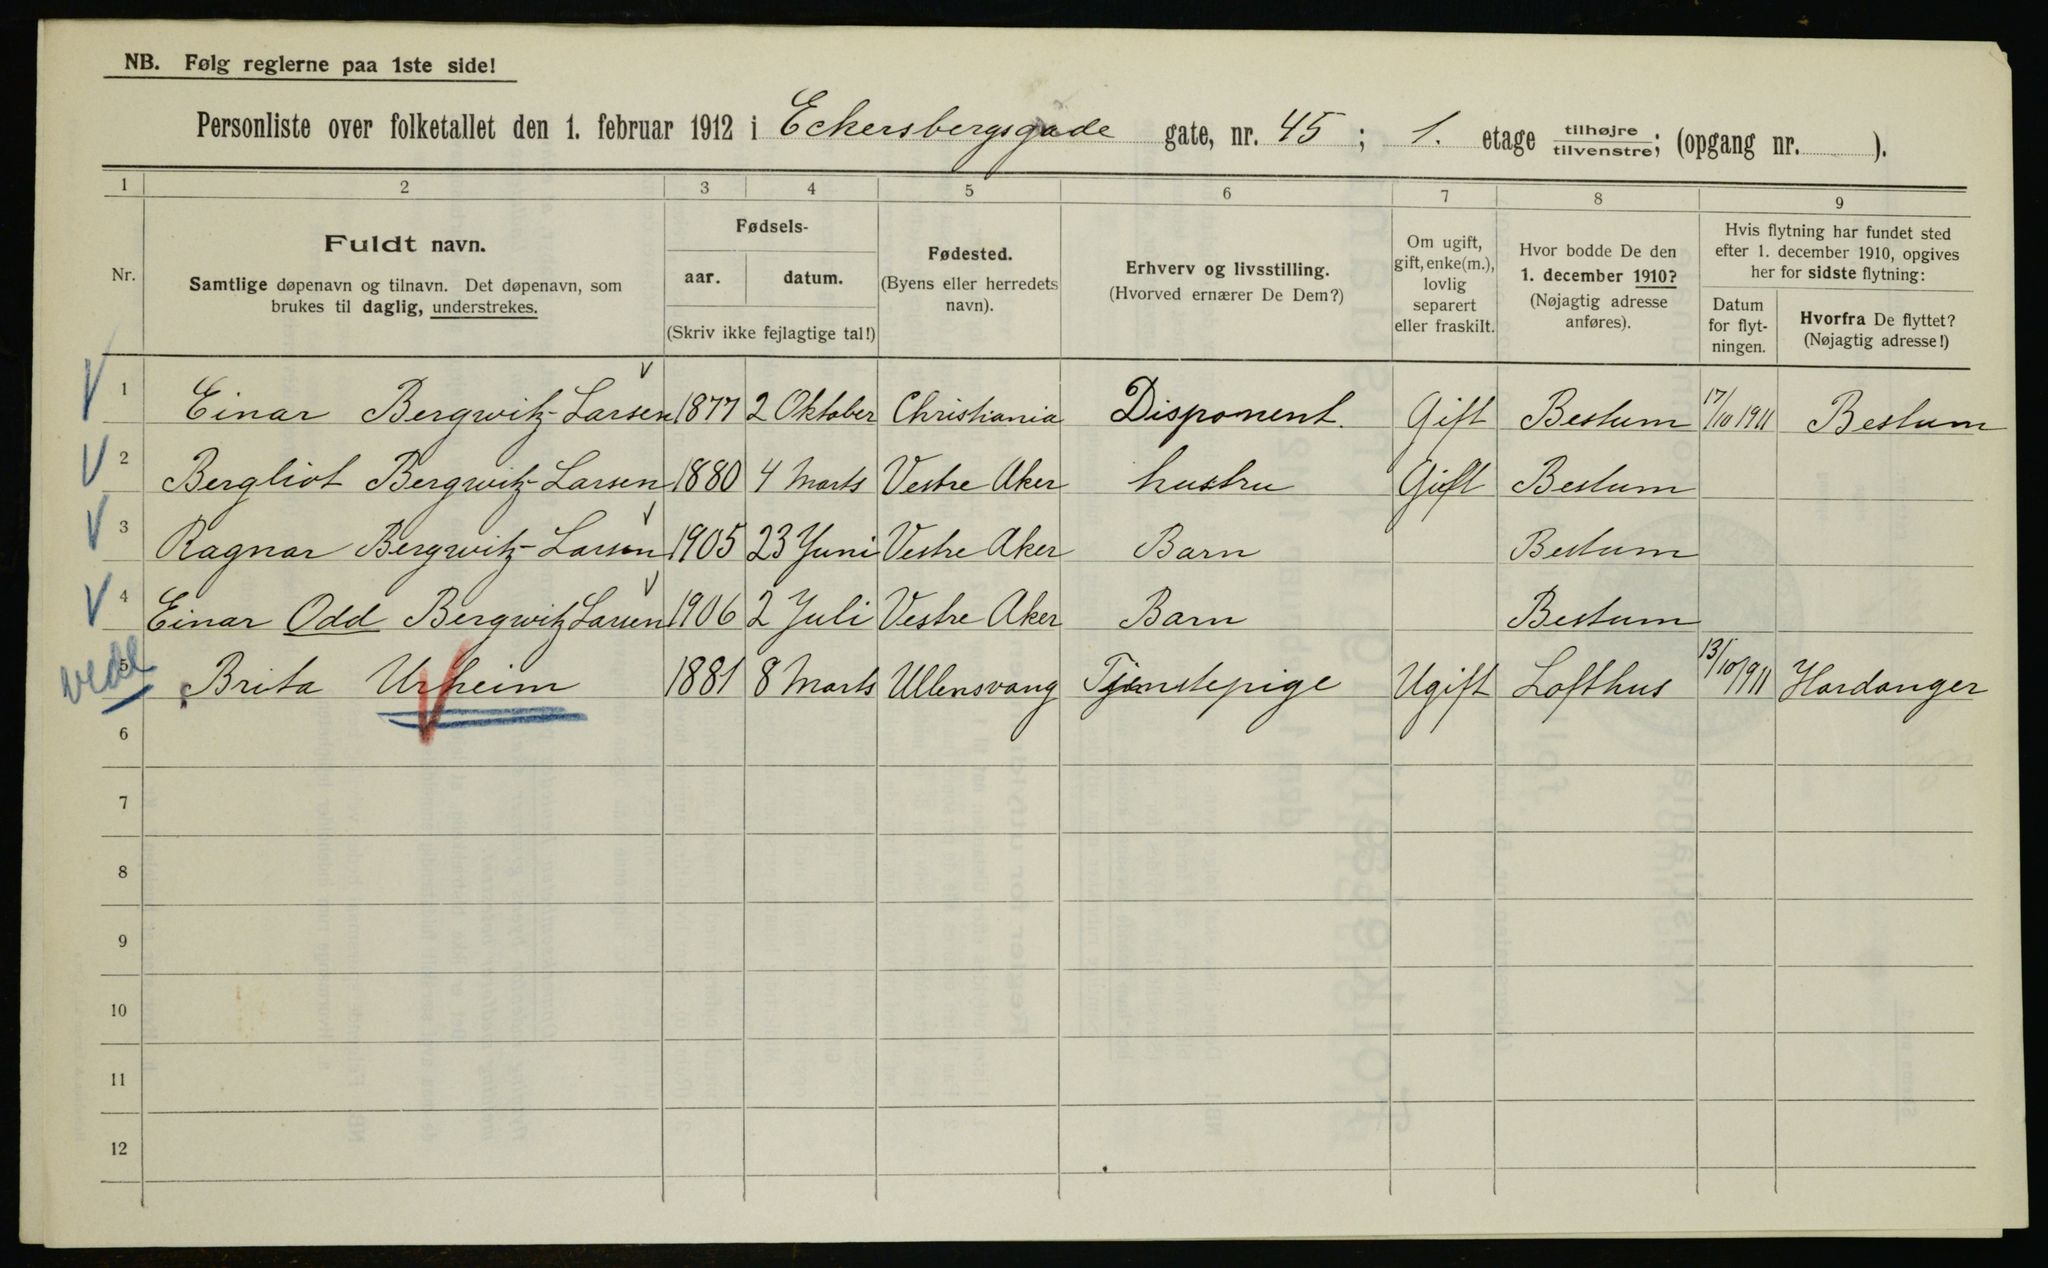 NB. Følg reglerne paa 1ste side!
Personliste over folketallet den 1. februar 1912 i Eckersbergsgade gate, nr. 45; 1. etage tilhøjre / tilvenstre; (opgang nr. ).
1 2 3 4 5 6 7 8 9
Nr.
Fuldt navn.
Samtlige døpenavn og tilnavn. Det døpenavn, som
brukes til daglig, understrekes.
Fødsels-
aar. datum.
(Skriv ikke fejlagtige tal!)
Fødested.
(Byens eller herredets
navn).
Erhverv og livsstilling.
(Hvorved ernærer De Dem?)
Om ugift,
gift, enke(m.),
lovlig
separert
eller fraskilt.
Hvor bodde De den
1. december 1910?
(Nøjagtig adresse
anføres).
Hvis flytning har fundet sted
efter 1. december 1910, opgives
her for sidste flytning:
Datum
for flyt-
ningen.
Hvorfra De flyttet?
(Nøjagtig adresse!)
1 Einar Bergwitz-Larsen 1877 2 Oktober Christiania Disponent. Gift Bestum 17/10 1911 Bestum
2 Bergliot Bergwitz-Larsen 1880 4 Marts Vestre Aker hustru Gift Bestum
3 Ragnar Bergwitz-Larsen 1905 23 Juni Vestre Aker Barn Bestum
4 Einar Odd Bergwitz Larsen 1906 2 Juli Vestre Aker Barn Bestum
5 Brita Urheim 1881 8 Marts Ullensvang Tjenstepige Ugift Lofthus 13/10/1911 Hardanger
6
7
8
9
10
11
12